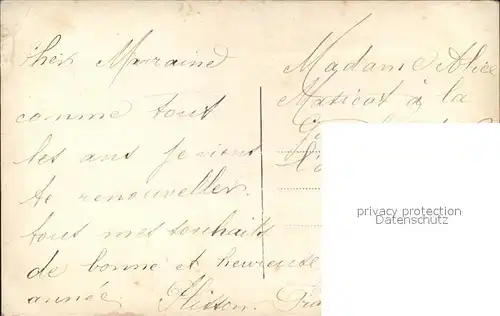 cher Marraine
comme tout
les ans je viens
te renouveller
tous mes souhaits
de bonne et heureuse
année
Madame Alice
Maticat à la
privacy protection
Datenschutz